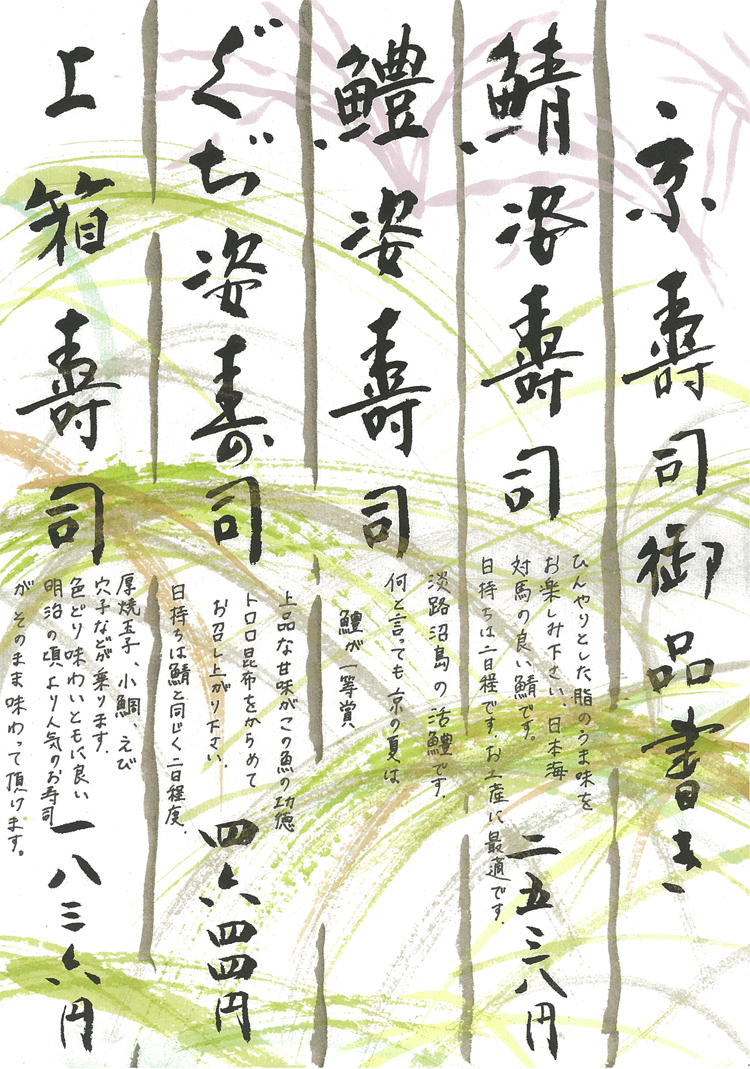 京寿司御品書き
鯖姿寿司
ひんやりとした脂のうま味を
お楽しみ下さい、日本海
対馬の良い鯖です。
日持ちは二日程です。お土産に最適です。
二五三八円
鱧姿寿司
淡路沼島の活鱧です。
何と言っても京の夏は
鱧が一等賞
ぐぢ姿寿司
上品な甘味がこの魚の功徳
トロロ昆布をからめて
お召し上がり下さい。
日持ちは鯖と同じく二日程度。
四六四四円
上箱寿司
厚焼玉子、小鯛、えび
穴子などが乗ります。
色どり味わいともに良い
明治の頃より人気のお寿司
が そのまま味わって頂けます。
一八三六円